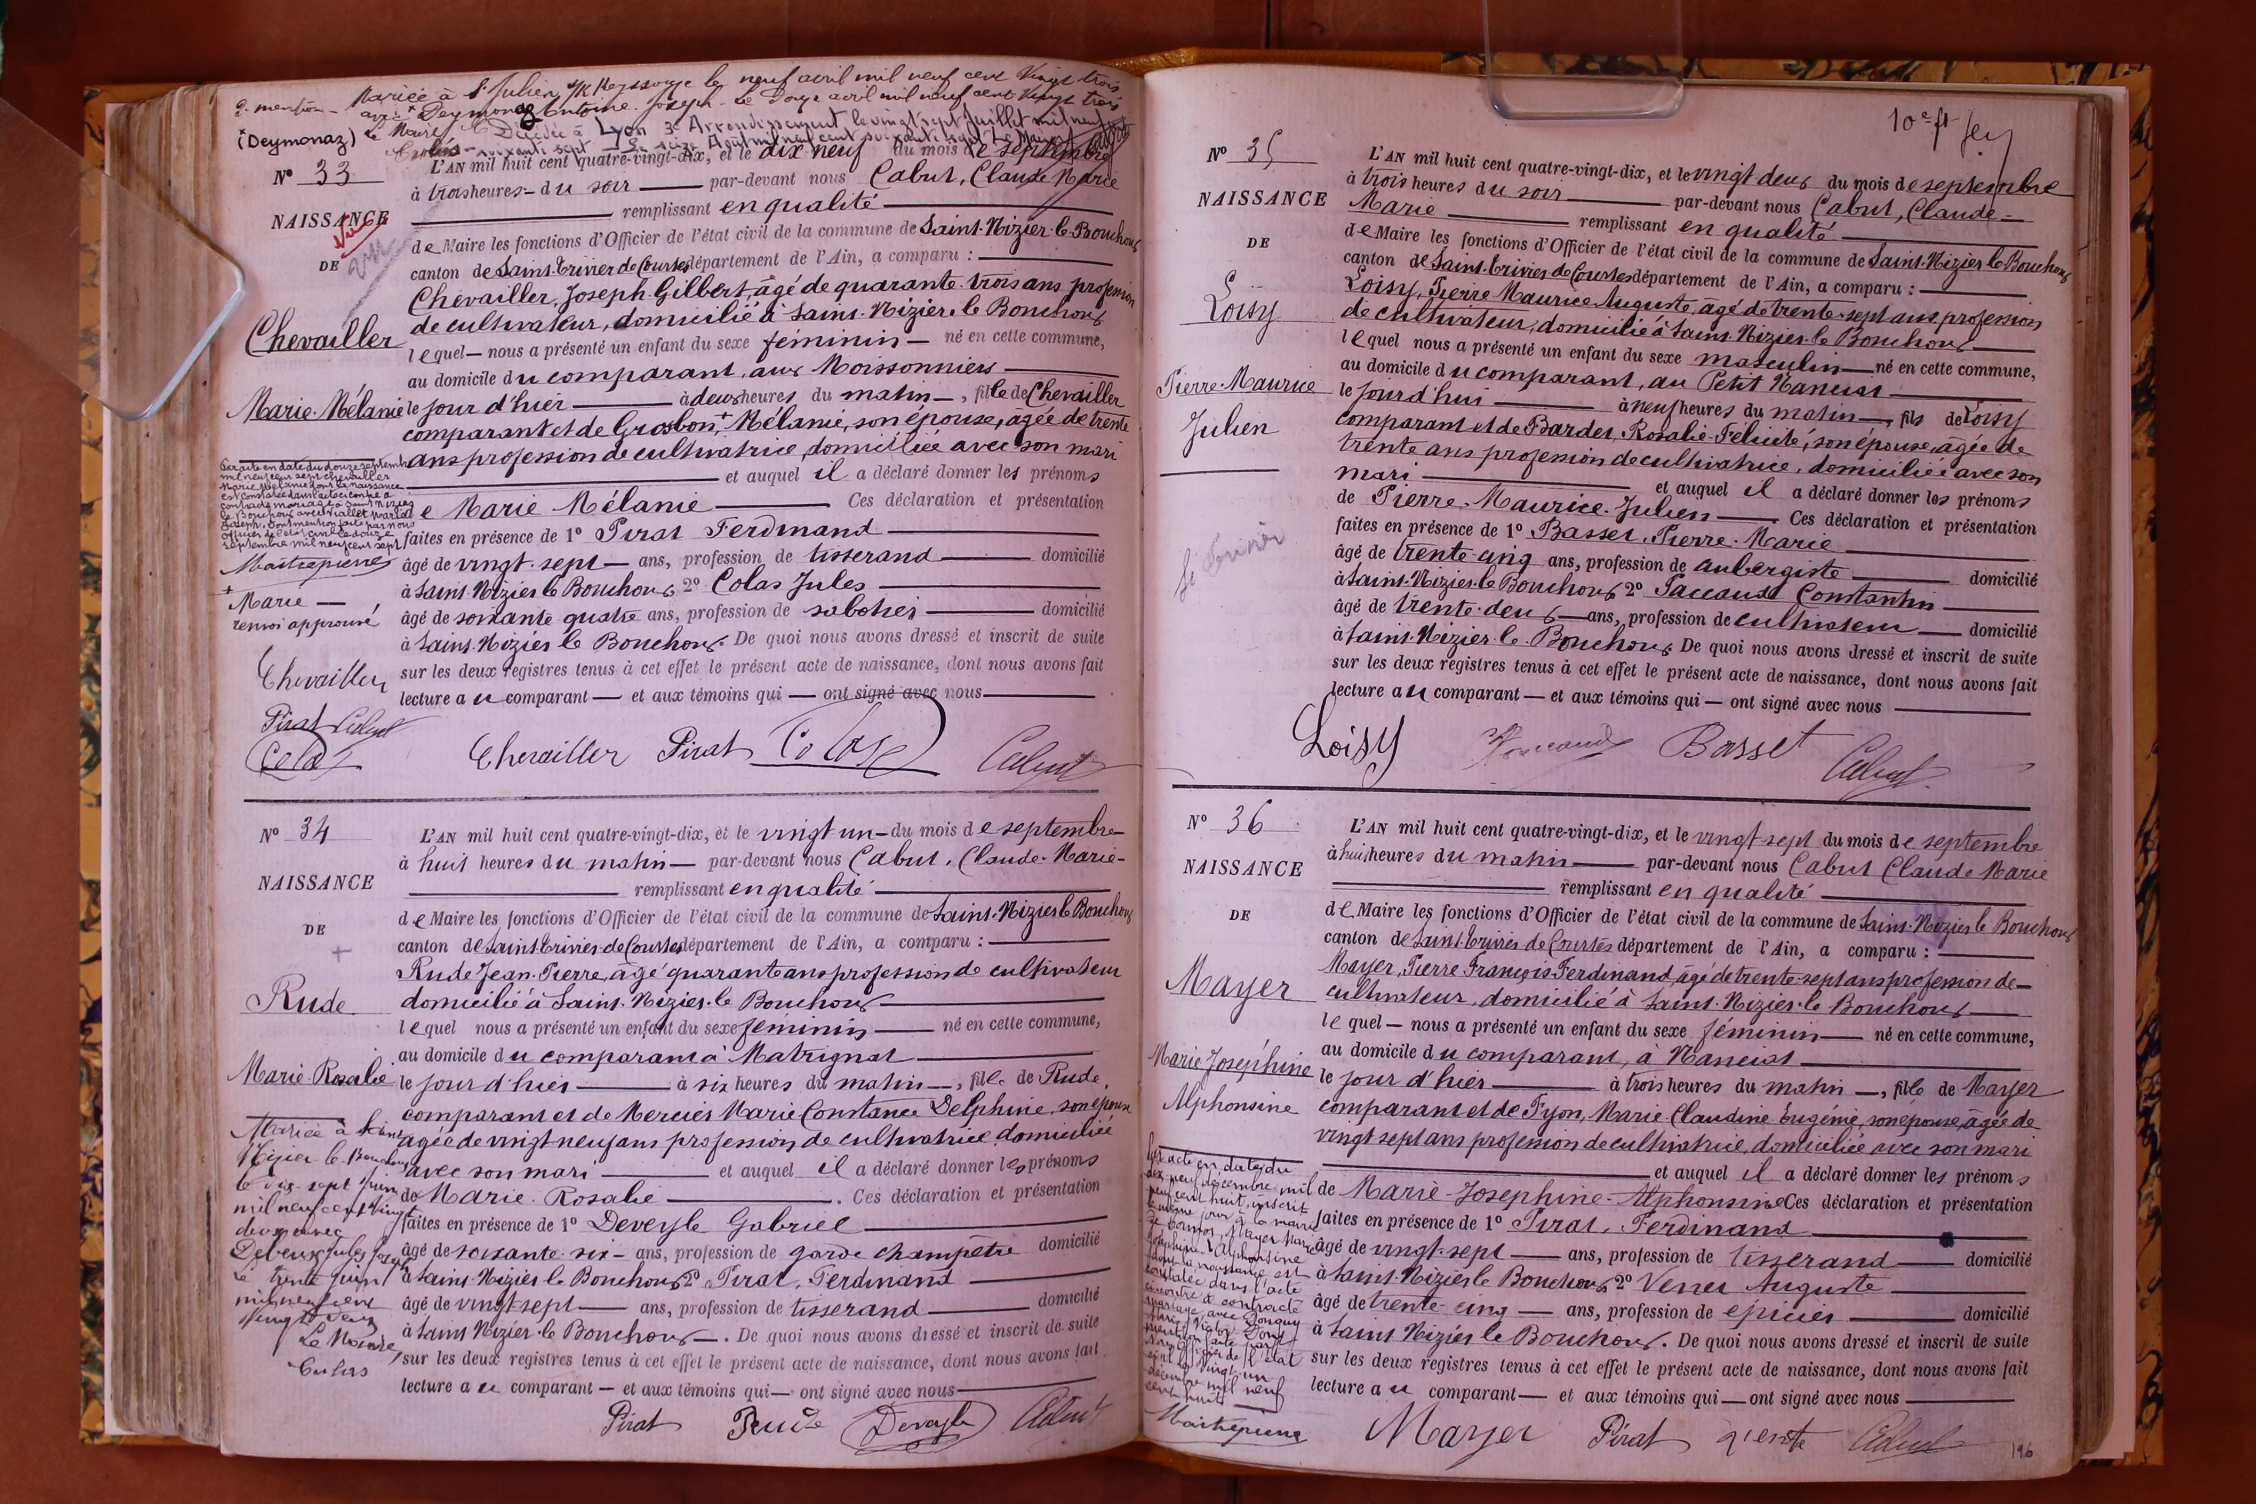 2e mention - Mariée à St Julien s/R Reyssouze le neuf avril mil neuf cent vingt trois
avec + Deymonaz Antoine Joseph. Le douze avril mil neuf cent vingt trois
+ (Deymonaz) Le Maire
Décédée à Lyon 3e Arrondissement le vingt sept Juillet mil neuf cent
soixante sept
No 33
NAISSANCE
DE
Chevailler
Marie-Mélanie
Par acte en date du douze septembre
mil neuf cent sept Chevailler
Marie Mélanie dont la naissance
est constatée dans l'acte ci contre a
contracté mariage à Saint Nizier
le Bouchoux avec Viallet Marie
Joseph. Dont mention faite par nous
officier de l'état civil le douze
septembre mil neuf cent sept
Maitrepierre
+ Marie —
renvoi approuvé
Chevailler
Pirat Cabut
Colas
L'AN mil huit cent quatre-vingt-dix, et le dix-neuf du mois de septembre
à trois heures du soir par-devant nous Cabut, Claude Marie
remplissant en qualité
de Maire les fonctions d'Officier de l'état civil de la commune de Saint-Nizier-le-Bouchoux
canton de Saint-Trivier de Courtes département de l'Ain, a comparu :
Chevailler, Joseph Gilbert, âgé de quarante-trois ans profession
de cultivateur, domicilié à Saint-Nizier le Bouchoux
lequel nous a présenté un enfant du sexe féminin né en cette commune,
au domicile du comparant, aux Moissonniers
le jour d'hier à deux heures du matin, fille de Chevailler
comparant et de Grosbon,+ Mélanie, son épouse, âgée de trente
ans profession de cultivatrice domiciliée avec son mari
et auquel il a déclaré donner les prénoms
de Marie Mélanie Ces déclaration et présentation
faites en présence de 1o Pirat Ferdinand
âgé de vingt-sept ans, profession de tisserand domicilié
à Saint-Nizier le Bouchoux 2o Colas Jules
âgé de soixante quatre ans, profession de sabotier domicilié
à Saint-Nizier le Bouchoux. De quoi nous avons dressé et inscrit de suite
sur les deux registres tenus à cet effet le présent acte de naissance, dont nous avons fait
lecture au comparant et aux témoins qui ont signé avec nous
Chevailler Pirat Colas Cabut
No 34
NAISSANCE
DE
Rude
Marie-Rosalie
Mariée à Saint
Nizier le Bouchoux
le dix-sept juin
mil neuf cent vingt
deux avec
Deveux Jules Joseph
Le trente juin
mil neuf cent
vingt deux
Le Maire,
L'AN mil huit cent quatre-vingt-dix, et le vingt-un du mois de septembre
à huit heures du matin par-devant nous Cabut, Claude-Marie
remplissant en qualité
de Maire les fonctions d'Officier de l'état civil de la commune de Saint-Nizier le Bouchoux
canton de Saint-Trivier de Courtes département de l'Ain, a comparu :
Rude Jean-Pierre, âgé quarante ans profession de cultivateur
domicilié à Saint-Nizier-le Bouchoux
lequel nous a présenté un enfant du sexe féminin né en cette commune,
au domicile du comparant à Matrignat
le jour d'hier à six heures du matin, fille de Rude,
comparant et de Mercier Marie Constance Delphine, son épouse
agée de vingt neuf ans profession de cultivatrice domiciliée
avec son mari et auquel il a déclaré donner les prénoms
de Marie-Rosalie. Ces déclaration et présentation
faites en présence de 1o Deveyle Gabriel
âgé de soixante-six ans, profession de garde champêtre domicilié
à Saint-Nizier le Bouchoux 2o Pirat, Ferdinand
âgé de vingt-sept ans, profession de tisserand domicilié
à Saint Nizier-le Bouchoux. De quoi nous avons dressé et inscrit de suite
sur les deux registres tenus à cet effet le présent acte de naissance, dont nous avons fait
lecture au comparant et aux témoins qui ont signé avec nous
Pirat Rude Deveyle Cabut
10e ft
No 35
NAISSANCE
DE
Loisy
Pierre-Maurice
Julien
L'AN mil huit cent quatre-vingt-dix, et le vingt deux du mois de septembre
à trois heures du soir par-devant nous Cabut, Claude-
Marie remplissant en qualité
de Maire les fonctions d'Officier de l'état civil de la commune de Saint-Nizier le Bouchoux
canton de Saint-Trivier de Courtes département de l'Ain, a comparu :
Loisy, Pierre Maurice Auguste, âgé de trente-sept ans, profession
de cultivateur, domicilié à Saint-Nizier-le Bouchoux
lequel nous a présenté un enfant du sexe masculin né en cette commune,
au domicile du comparant, au Petit Nanciat
le jour d'hui à neuf heures du matin, fils de Loisy
comparant et de Bardet, Rosalie-Félicité, son épouse, agée de
trente ans profession de cultivatrice, domiciliée avec son
mari et auquel il a déclaré donner les prénoms
de Pierre-Maurice-Julien Ces déclaration et présentation
faites en présence de 1o Basset, Pierre-Marie
âgé de trente-cinq ans, profession de aubergiste domicilié
à Saint-Nizier-le Bouchoux 2o Paccaud Constantin
âgé de trente-deux ans, profession de cultivateur domicilié
à Saint-Nizier-le-Bouchoux De quoi nous avons dressé et inscrit de suite
sur les deux registres tenus à cet effet le présent acte de naissance, dont nous avons fait
lecture au comparant et aux témoins qui ont signé avec nous
Loisy Paccaud Basset Cabut
No 36
NAISSANCE
DE
Mayer
Marie Joséphine
Alphonsine
Par acte en date du
dix neuf décembre mil
neuf cent huit, inscrit
le même jour à la mairie
de Cormoz, Mayer Marie
Joséphine Alphonsine
dont la naissance est
constatée dans l'acte
ci contre a contracté
mariage avec Donguy
Marie Victor. Dont
mention faite par
nous officier de l'état
civil le vingt un
décembre mil neuf
cent huit
Maitrepierre
L'AN mil huit cent quatre-vingt-dix, et le vingt-sept du mois de septembre
à huit heures du matin par-devant nous Cabut Claude Marie
remplissant en qualité
de Maire les fonctions d'Officier de l'état civil de la commune de Saint-Nizier le Bouchoux
canton de Saint-Trivier de Courtes département de l'Ain, a comparu :
Mayer, Pierre François Ferdinand, âgé de trente-sept ans profession de
cultivateur, domicilié à Saint-Nizier-le Bouchoux
lequel nous a présenté un enfant du sexe féminin né en cette commune,
au domicile du comparant, à Nanciat
le jour d'hier à trois heures du matin, fille de Mayer
comparant et de Fyon, Marie Claudine Eugénie, son épouse, agée de
vingt sept ans profession de cultivatrice, domiciliée avec son mari
et auquel il a déclaré donner les prénoms
de Marie-Josephine-Alphonsine Ces déclaration et présentation
faites en présence de 1o Pirat, Ferdinand
âgé de vingt-sept ans, profession de tisserand domicilié
à Saint-Nizier le Bouchoux 2o Venet Auguste
âgé de trente-cinq ans, profession de épicier domicilié
à Saint-Nizier le Bouchoux. De quoi nous avons dressé et inscrit de suite
sur les deux registres tenus à cet effet le présent acte de naissance, dont nous avons fait
lecture au comparant et aux témoins qui ont signé avec nous
Mayer Pirat Cabut
196